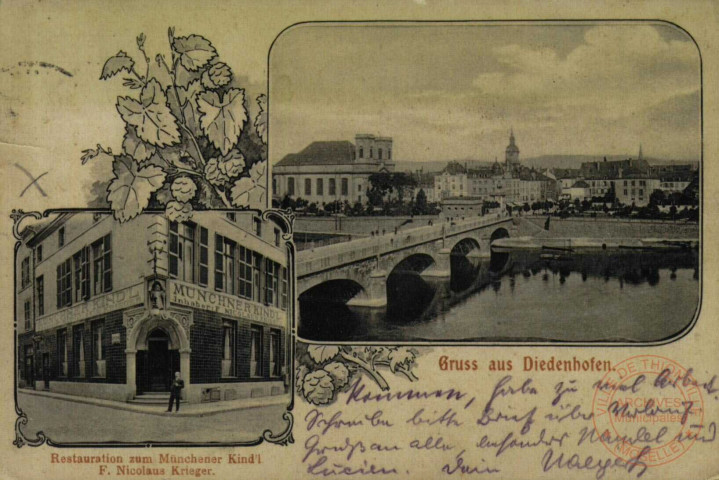 MÜNCHNER KINDL
Gruss aus Diedenhofen.
kommen, habe zu viel Arbeit.
Schreibe bitte Brief über
Gruß an alle, besonders und
Lucien. Dein
Restauration zum Münchener Kind'l
F. Nicolaus Krieger.
VILLE DE THIONVILLE
ARCHIVES
Municipales
MOSELLE